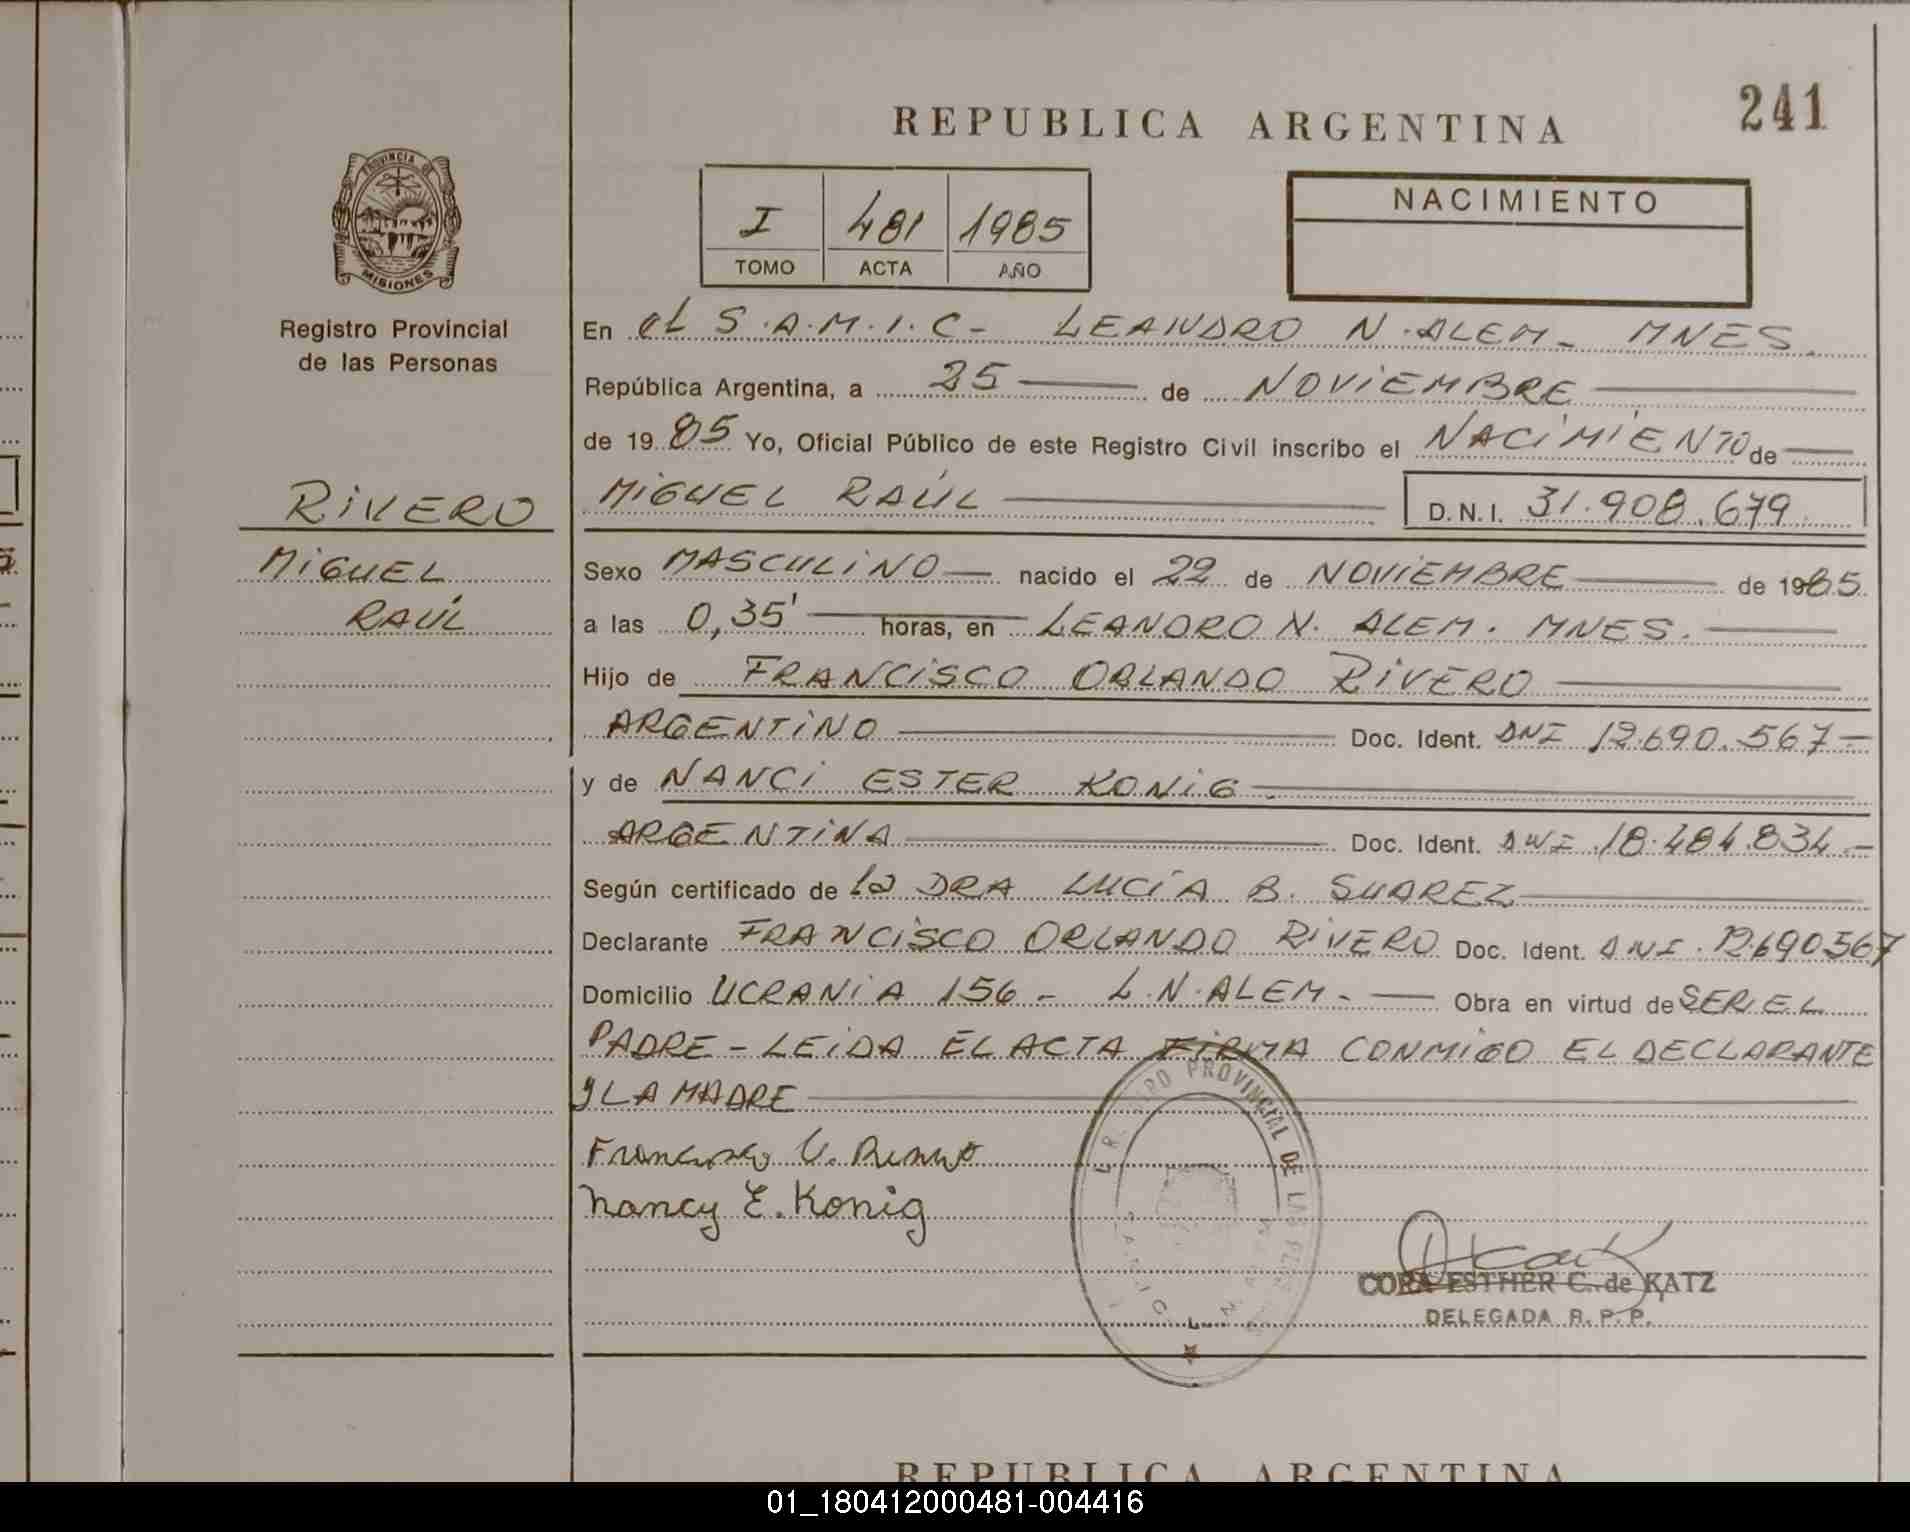 241
REPUBLICA ARGENTINA
PROVINCIA DE
MISIONES
Registro Provincial
de las Personas
I 481 1985
TOMO ACTA AÑO
NACIMIENTO
En el S.A.M.I.C- LEANDRO N. ALEM- MNES.
República Argentina, a 25 de NOVIEMBRE
de 1985 Yo, Oficial Público de este Registro Civil inscribo el NACIMIENTO de
RIVERO
MIGUEL
RAÚL
MIGUEL RAÚL D.N.I. 31.908.679
Sexo MASCULINO nacido el 22 de NOVIEMBRE de 1985
a las 0,35' horas, en LEANDRO N. ALEM. MNES.
Hijo de FRANCISCO ORLANDO RIVERO
ARGENTINO Doc. Ident. DNI 12.690.567-
y de NANCI ESTER KONIG
ARGENTINA Doc. Ident. DNI 18.484.834.-
Según certificado de la DRA LUCÍA B. SUAREZ
Declarante FRANCISCO ORLANDO RIVERO Doc. Ident. DNI. 12.690567
Domicilio UCRANIA 156- L.N.ALEM- Obra en virtud de SER EL
PADRE - LEIDA EL ACTA FIRMA CONMIGO EL DECLARANTE
y LA MADRE
Francisco
Nancy E. Konig
PROVINCIAL DE LAS
CORA ESTHER C. de KATZ
DELEGADA R. P. P.
REPUBLICA ARGENTINA
01_180412000481-004416